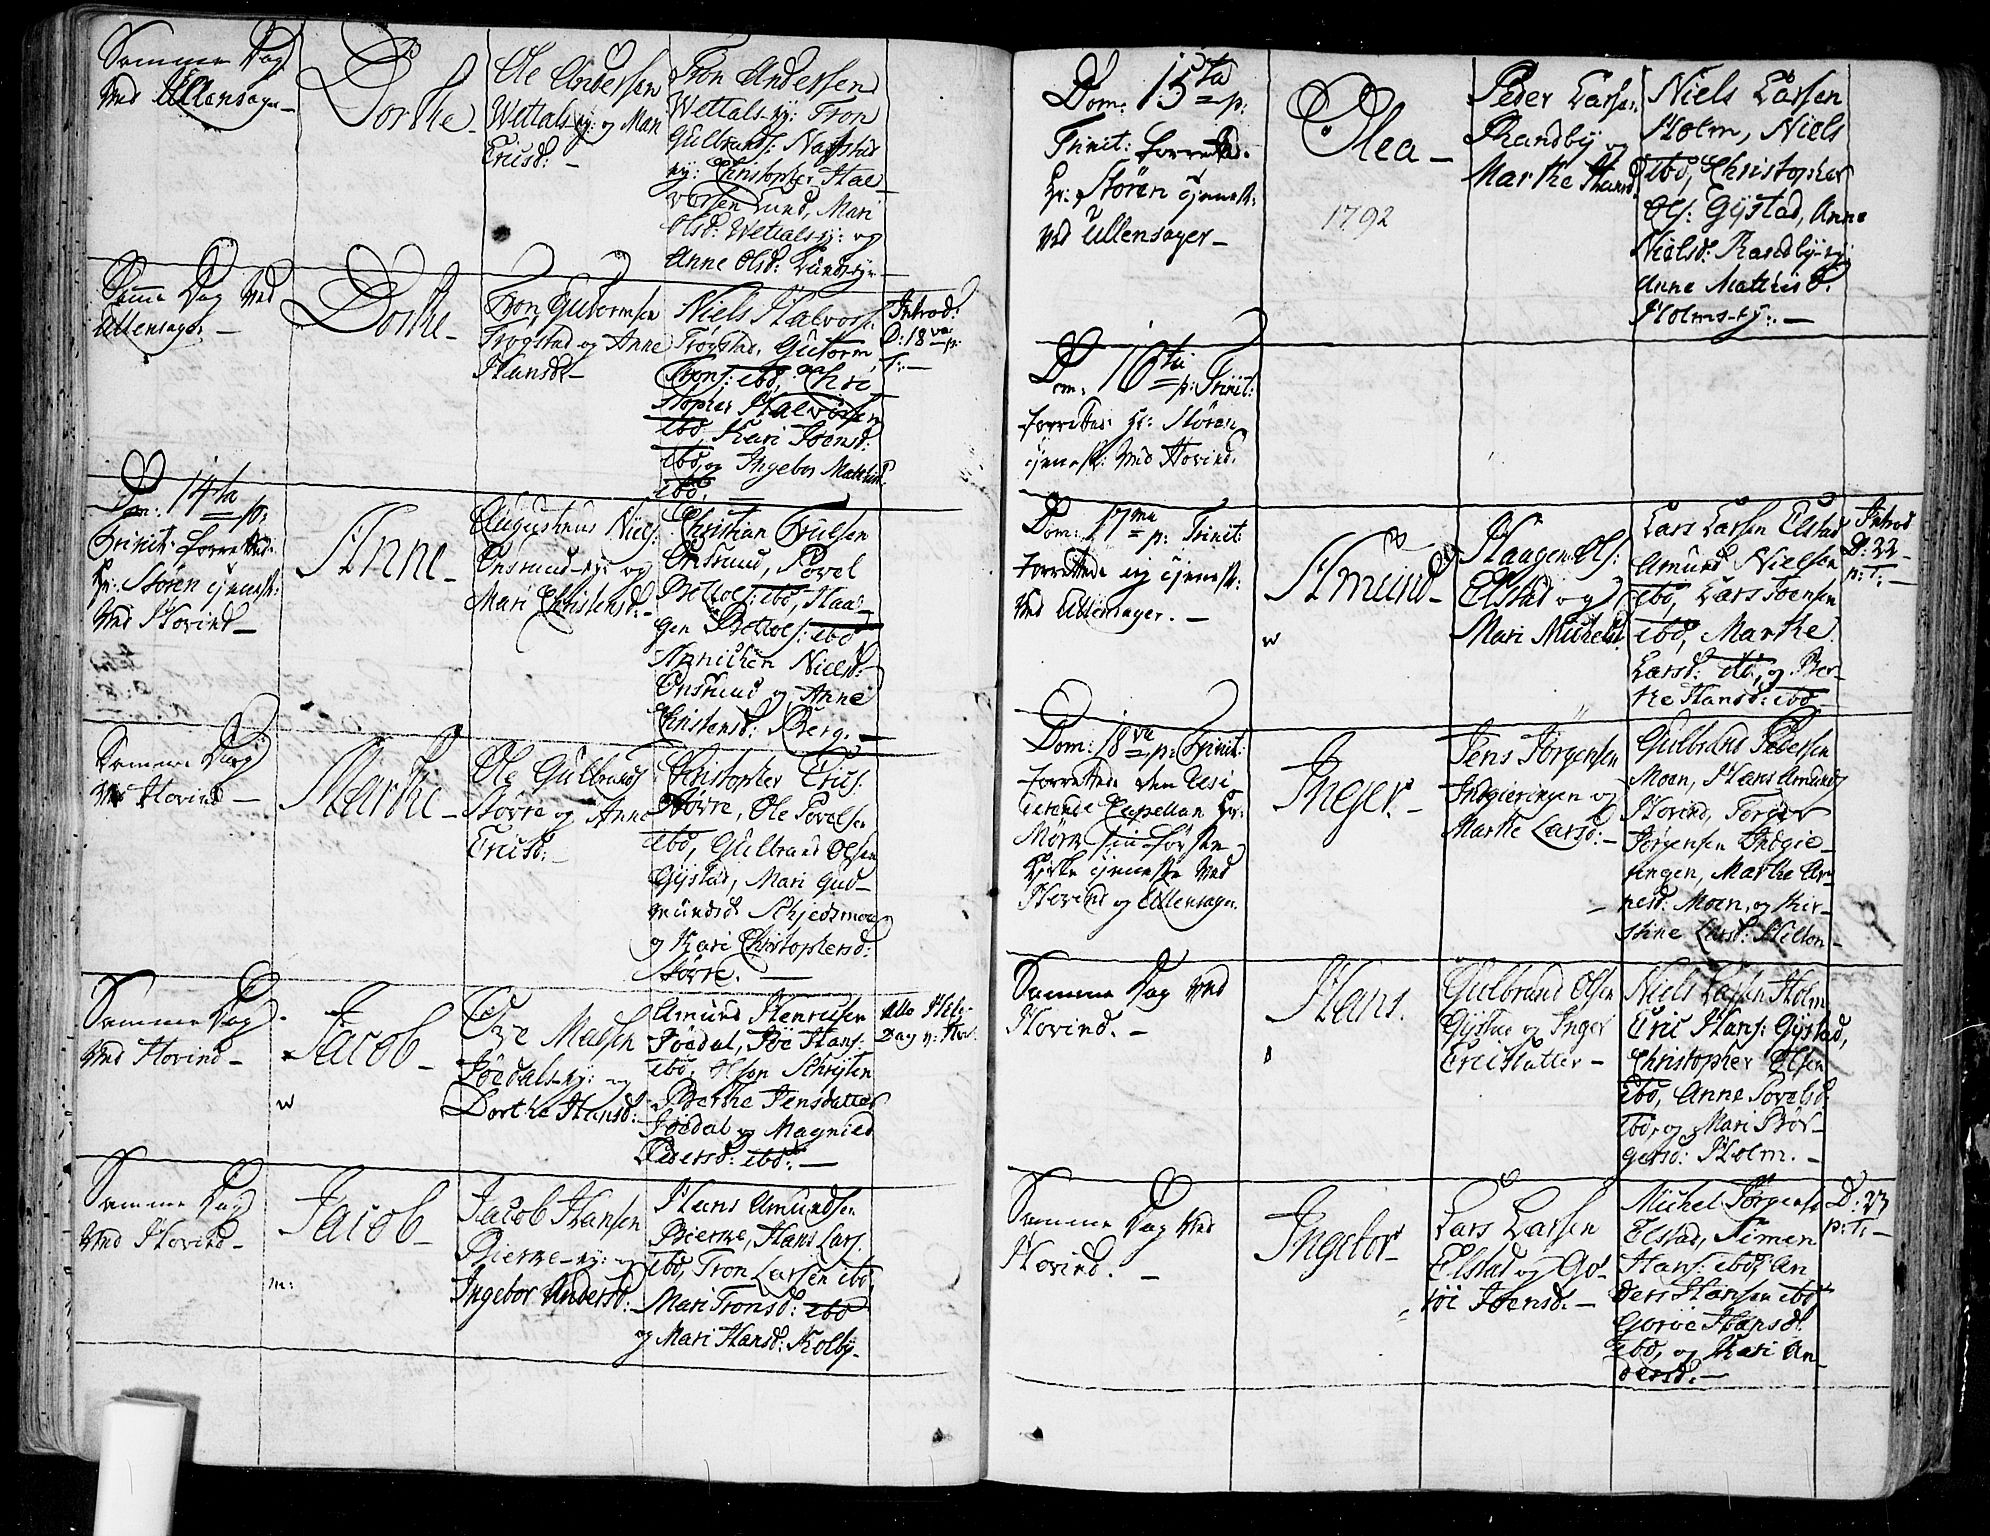 Samme Dag
ved Ullensager
Dorthe
Ole Andersen
Wettals-ey: og Mari
Ericsd:
Tron Andersen
Wettals-ey: Tron
Gulbrands: Nafstad
ey: Christopher Hal-
vorsen Lund, Mari
Olsd: Wettals-ey: og
Anne Olsd: Lunds-ey.
Samme Dag ved
Ullensager
Dorthe
Tron Gutormsen
Trøgstad og Anne
Hansd:
Niels Halvors:
Trøgstad, Gutorm
Trons: ibd, Chri
stopher Halvorsen
ibd, Kari Joensd:
ibd, og Ingebor Mathisd:
ibd.
Introd:
D: 18va p:
T:
Dom: 14ta p:
Trinit: forretted:
Hr: Støren tjenest:
ved Hovind
Anne
Augustinus Niels:
Onsrud-ey: og
Mari Christensd:
Christian Truelsen
Onsrud, Povel
Bottols: ibd, Haa-
gen Bottols: ibd
Annichen Nielsd:
Onsrud og Anne
Christensd: Berg.
Samme Dag
ved Hovind
Marthe
Ole Gulbrands:
Horre og Anne
Ericsd:
Christopher Erics:
Horre, Ole Povelsen
ibd, Gulbrand Olsen
Gystad, Mari Gud-
mundsd: Schjedsmoe
og Kari Christophersd:
Horre.
Samme Dag
ved Hovind
Jacob
Ove Madsen
Jødals-ey: og
Dorthe Hansd:
Amund Henricsen
Jødal, Joe Hans:
ibd,
Berthe Jensdatter
Jødal og Magnild
Pedersd: ibd.
Alle Helg:
Dag
Samme Dag
ved Hovind
Jacob
Jacob Hansen
Bierke-ey: og
Ingebor Andersd:
Hans Amundsen
Bierke, Hans Lars:
ibd, Tron Larsen ibd
Mari Tronsd: ibd
og Mari Hansd: Kolby
Dom: 15ta p:
Trinit: forretted:
Hr: Støren tjenest:
ved Ullensager
Olea
1792
Peder Larsen
Randby og
Marthe Hansd:
Niels Larsen
Holm, Niels
ibd, Christopher
Ols: Gystad, Anne
Nielsd: Randby-ey
Anne Mathisd:
Holms-ey:
Dom: 16ta p: Trinit:
forrettes: Hr: Støren
tjenest: ved Hovind.
Dom: 17ma p: Trinit:
forrettede ieg tjenest:
ved Ullensager.
Amund
Haagen Ols:
Elstad og
Mari Michelsd:
Lars Larsen Elstad
Amund Nielsen
ibd, Lars Joensen
ibd, Marthe
Larsd: ibd, og Ber-
the Hansd: ibd
Introd
D: 22
p: T:
Dom: 18va p: Trinit:
forrettede den resi
derende Capellan Hr:
Mørk sin første
Kirke tjeneste ved
Hovind og Ullensager.
Inger
Jens Jørgensen
Indgieringen og
Marthe Larsd:
Gulbrand Pedersen
Moen, Hans Amunds
Hovind, Torger
Jørgensen Indgie-
ringen, Marthe Ar-
nesd: Moen, og Kir-
stine Larsd: Hilton
Samme Dag ved
Hovind.
Hans.
Gulbrand Olsen
Gystad og Inger
Ericsdatter
Niels Larsen Holm
Eric Hans: Gystad,
Christopher Olsen
ibd, Anne Povelsd:
ibd, og Mari Bør-
gersd: Holm.
Samme Dag ved
Hovind.
Ingebor
Lars Larsen
Elstad og Go-
roe Joensd:
Michel Jørgens:
Elstad, Simen
Hans: ibd, An
ders Hansen ibd
Goroe Hansd:
ibd, og Kari An-
dersd:
D: 23
p: T: